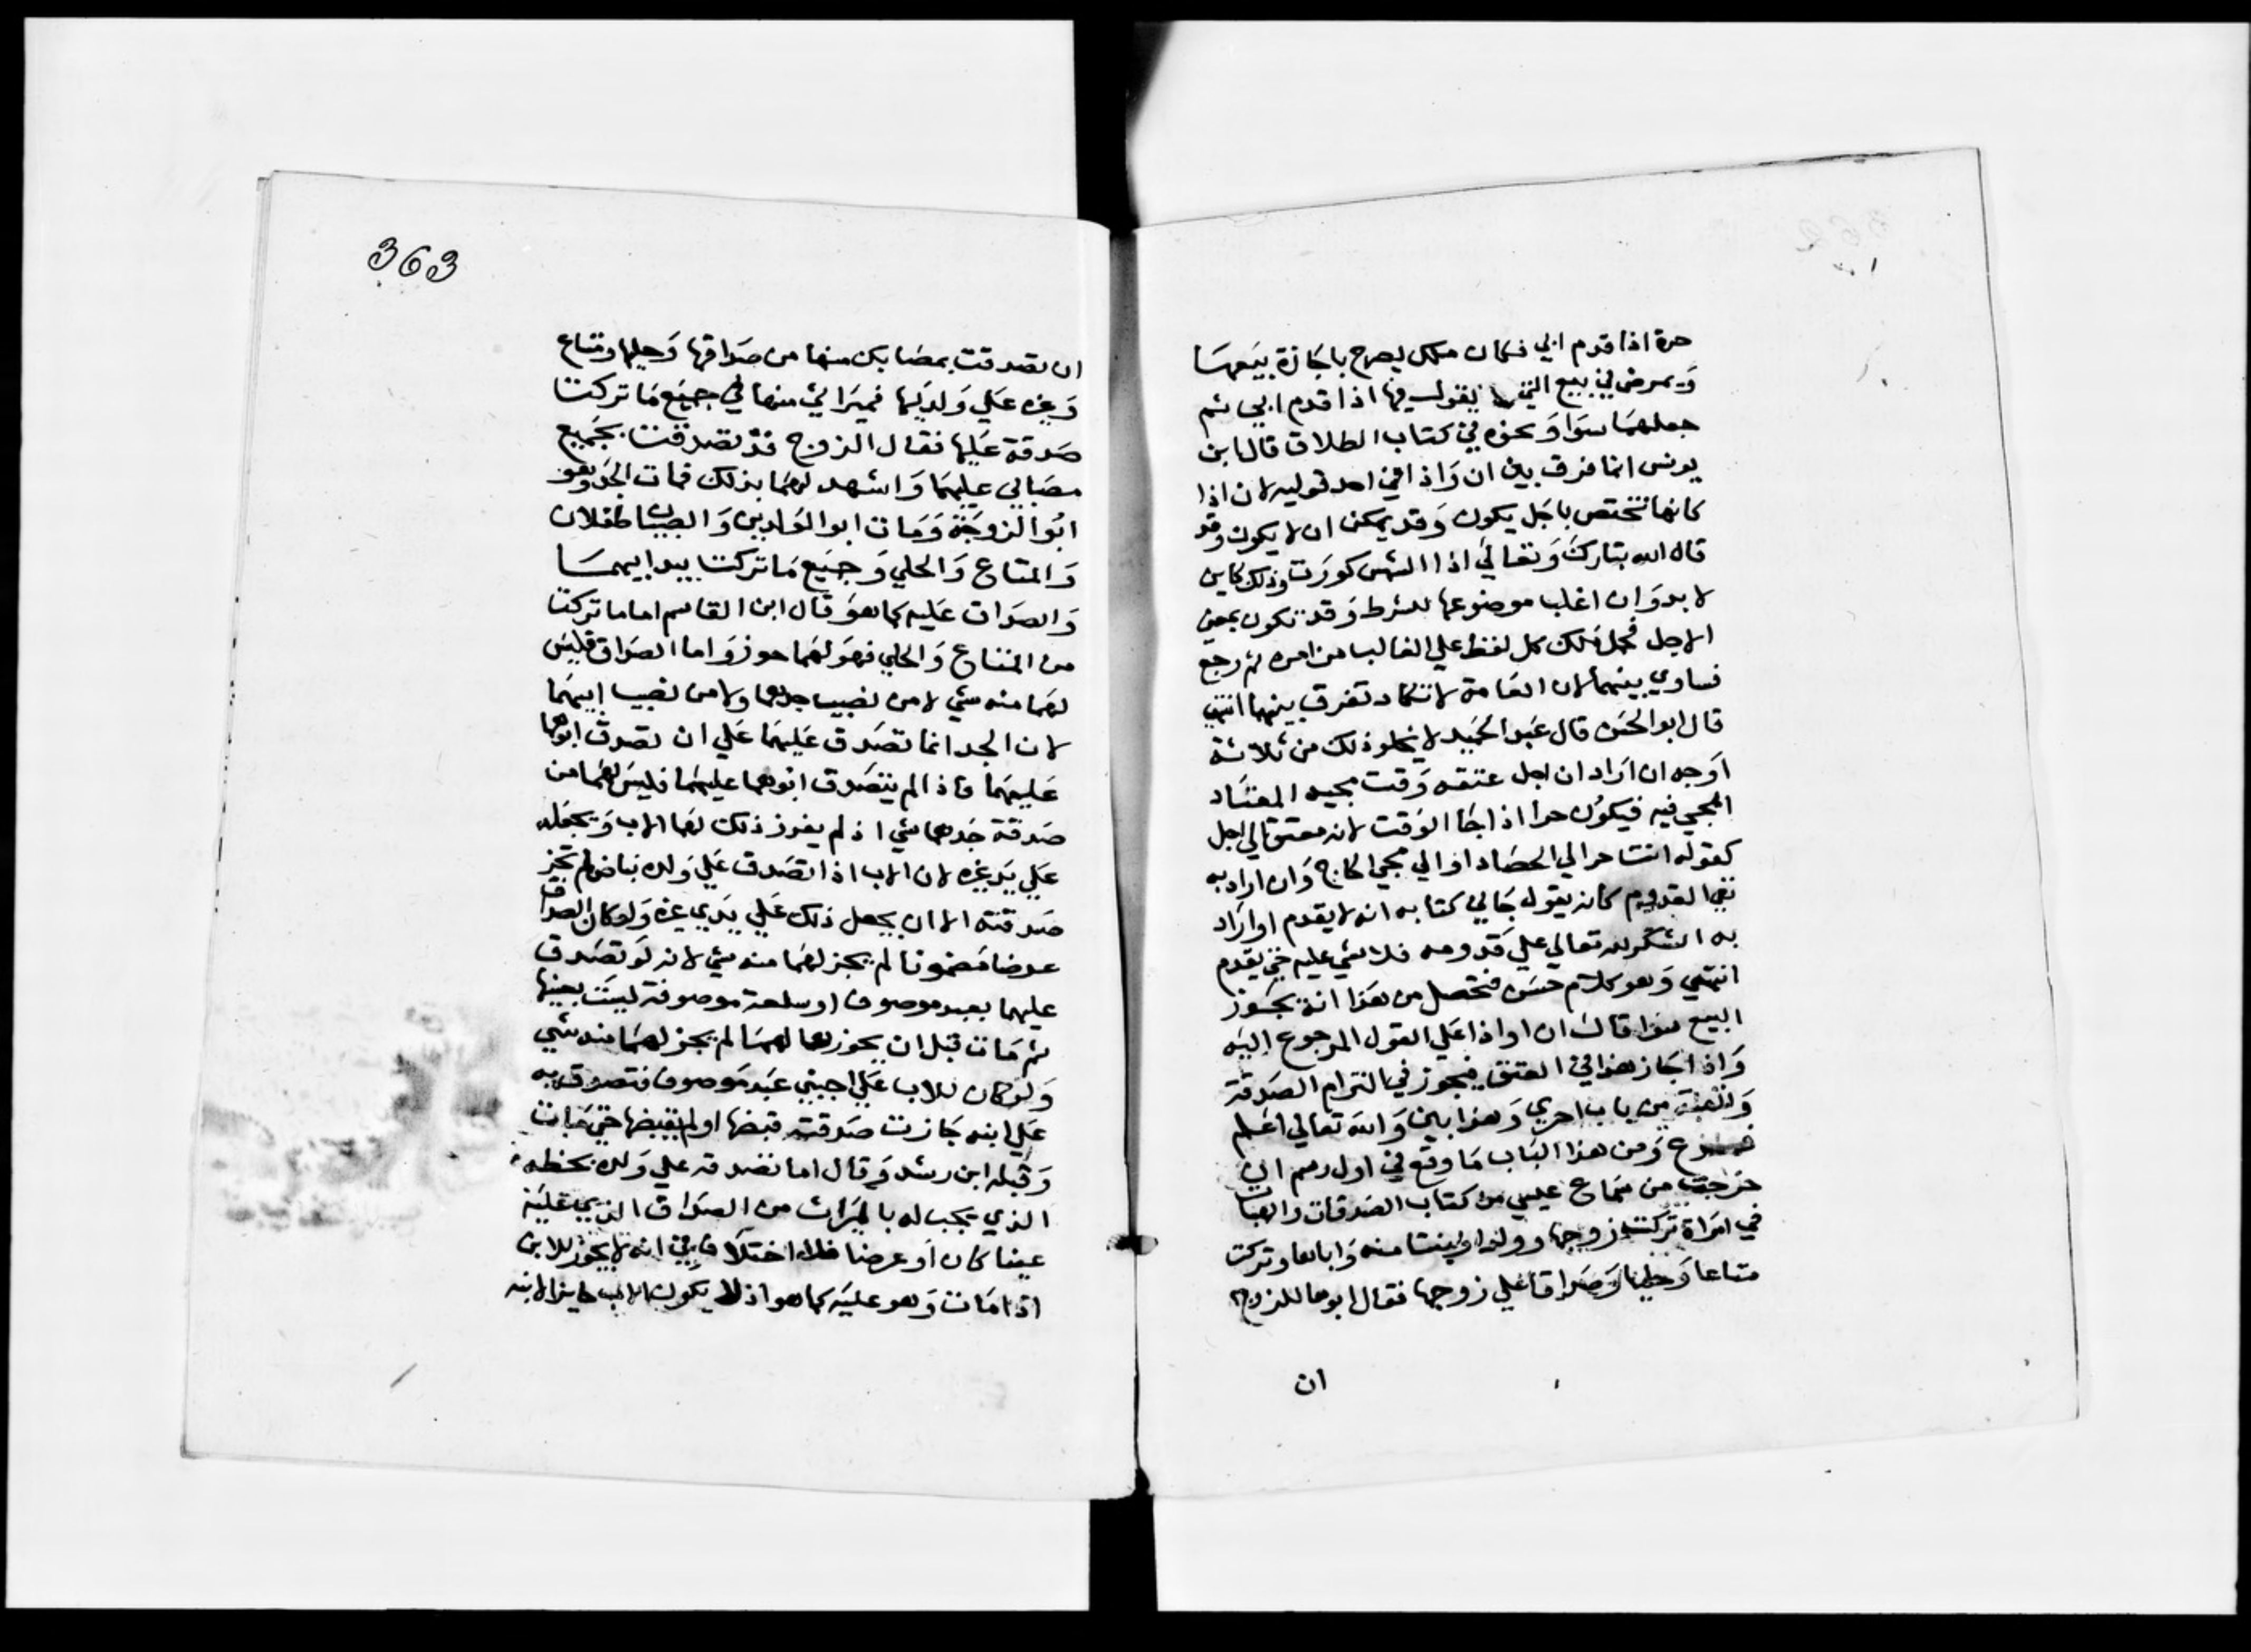 حرة اذا قدم ابي فكان ملك يصرح باجازة بيعها
ويمرض في بيع التي يقول فيها اذا قدم ابي ثم
جعلهما سوا ونحوه في كتاب الطلاق قال ابن
يونس انما فرق بين ان واذا في احد قوليه لان اذا
كانها تختص باجل يكون وقد يمكن ان لا يكون وقد
قال الله تبارك وتعالي اذا الشمس كورت وذلك كاين
لا بد وان اغلب موضوعها للشرط وقد تكون بمعني
الاجل فحمل ملك كل لفظ علي الغالب من امره ثم رجع
فساوي بينهما لان العامة لا تكاد تفرق بينهما انتهي
قال ابو الحسن قال عبد الحميد لا يخلو ذلك من ثلاثة
اوجه ان اراد ان اجل عتقه وقت مجيه المعتاد
المجي فيه فيكون حرا اذا جا الوقت لانه معتق الي اجل
كقوله انت حر الي الحصاد او الي مجي الحاج وان اراد به
نفي القدوم كانه يقول جاني كتابه انه لا يقدم او اراد
به الشكر لله تعالي علي قدومه فلا شي عليه حتي يقدم
انتهي وهو كلام حسن فتحصل من هذا انه يجوز
البيع سوا قال ان او اذا علي القول المرجوع اليه
واذا جاز هذا في العتق فيجوز في التزام الصدقة
والهبة من باب احري وهذا بين والله تعالي اعلم
فرع ومن هذا الباب ما وقع في اول رسم ان
خرجت من سماع عيسي من كتاب الصدقات والهبات
في امراة تركت زوجها وولدا وبنتا منه وابا لها وتركت
متاعا وحليا وصداقا علي زوجها فقال ابوها للزوج
ان
363
ان تصدقت بمصابك منها من صداقها وحليها ومتاع
وغيره علي ولديها فميراثي منها في جميع ما تركت
صدقة عليها فقال الزوج قد تصدقت بجميع
مصابي عليهما واشهد لهما بذلك فمات الجد وهو
ابو الزوجة ومات ابو الولدين والصبيان طفلان
والمتاع والحلي وجميع ما تركت بيد ابيهما
والصداق عليه كما هو قال ابن القاسم اما ما تركت
من المتاع والحلي فهو لهما حوز واما الصداق فليس
لهما منه شي لا من نصيب جدهما ولا من نصيب ابيهما
لان الجد انما تصدق عليهما علي ان تصدق ابوهما
عليهما فاذا لم يتصدق ابوهما عليهما فليس لهما من
صدقة جدهما شي اذ لم يفرز ذلك لهما الاب ويجعله
علي يد غيره لان الاب اذا تصدق علي ولده بناض لم تجز
صدقته الا ان يجعل ذلك علي يدي غيره ولو كان الصداق
عرضا مضمونا لم يجز لهما منه شي لانه لو تصدق
عليهما بعبد موصوف او سلعة موصوفة ليست بعينها
ثم مات قبل ان يحوزها لهما لم يجز لهما منه شي
ولو كان للاب علي اجنبي عبد موصوف فتصدق به
علي ابنه جازت صدقته قبضها او لم يقبضها حتي مات
وقبله ابن رشد وقال اما تصدقه علي ولده بحظه
الذي يجب له بالميراث من الصداق الذي عليه
عينا كان او عرضا فلا اختلاف في انه لا يجوز للابن
اذا مات وهو عليه كما هو اذ لا يكون الاب حايزا لابنه